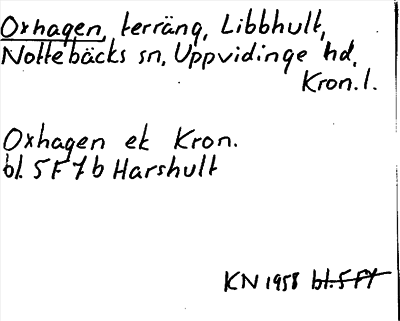 Oxhagen, terräng, Libbhult,
Nottebäcks sn, Uppvidinge hd,
Kron. l.
Oxhagen ek Kron.
bl. 5F7b Harshult
KN 1958 bl. 5 F7